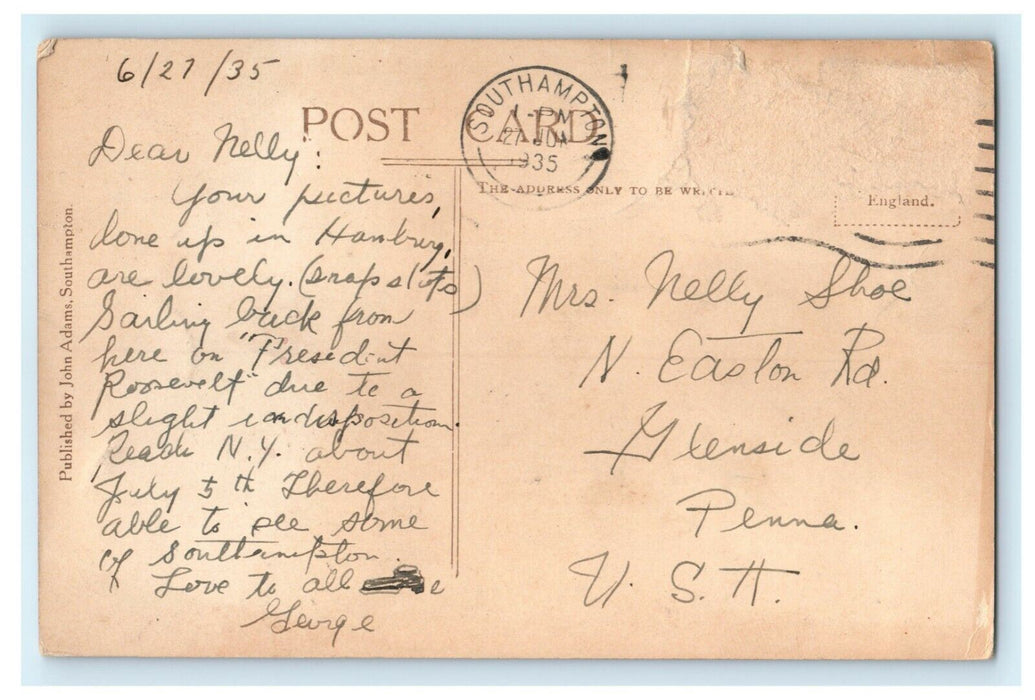 6/27/35
POST CARD
SOUTHAMPTON
1-PM
27 JUN
1935
THE ADDRESS ONLY TO BE
England.
Published by John Adams, Southampton.
Dear Nelly:
Your pictures,
done up in Hamburg,
are lovely. (snapshots)
Sailing back from
here on "President
Roosevelt" due to a
slight indisposition.
Reach N.Y. about
July 5th Therefore
able to see some
of Southampton.
Love to all
George
Mrs. Nelly Shoe
N. Easton Rd.
Glenside
Penna.
U. S. A.